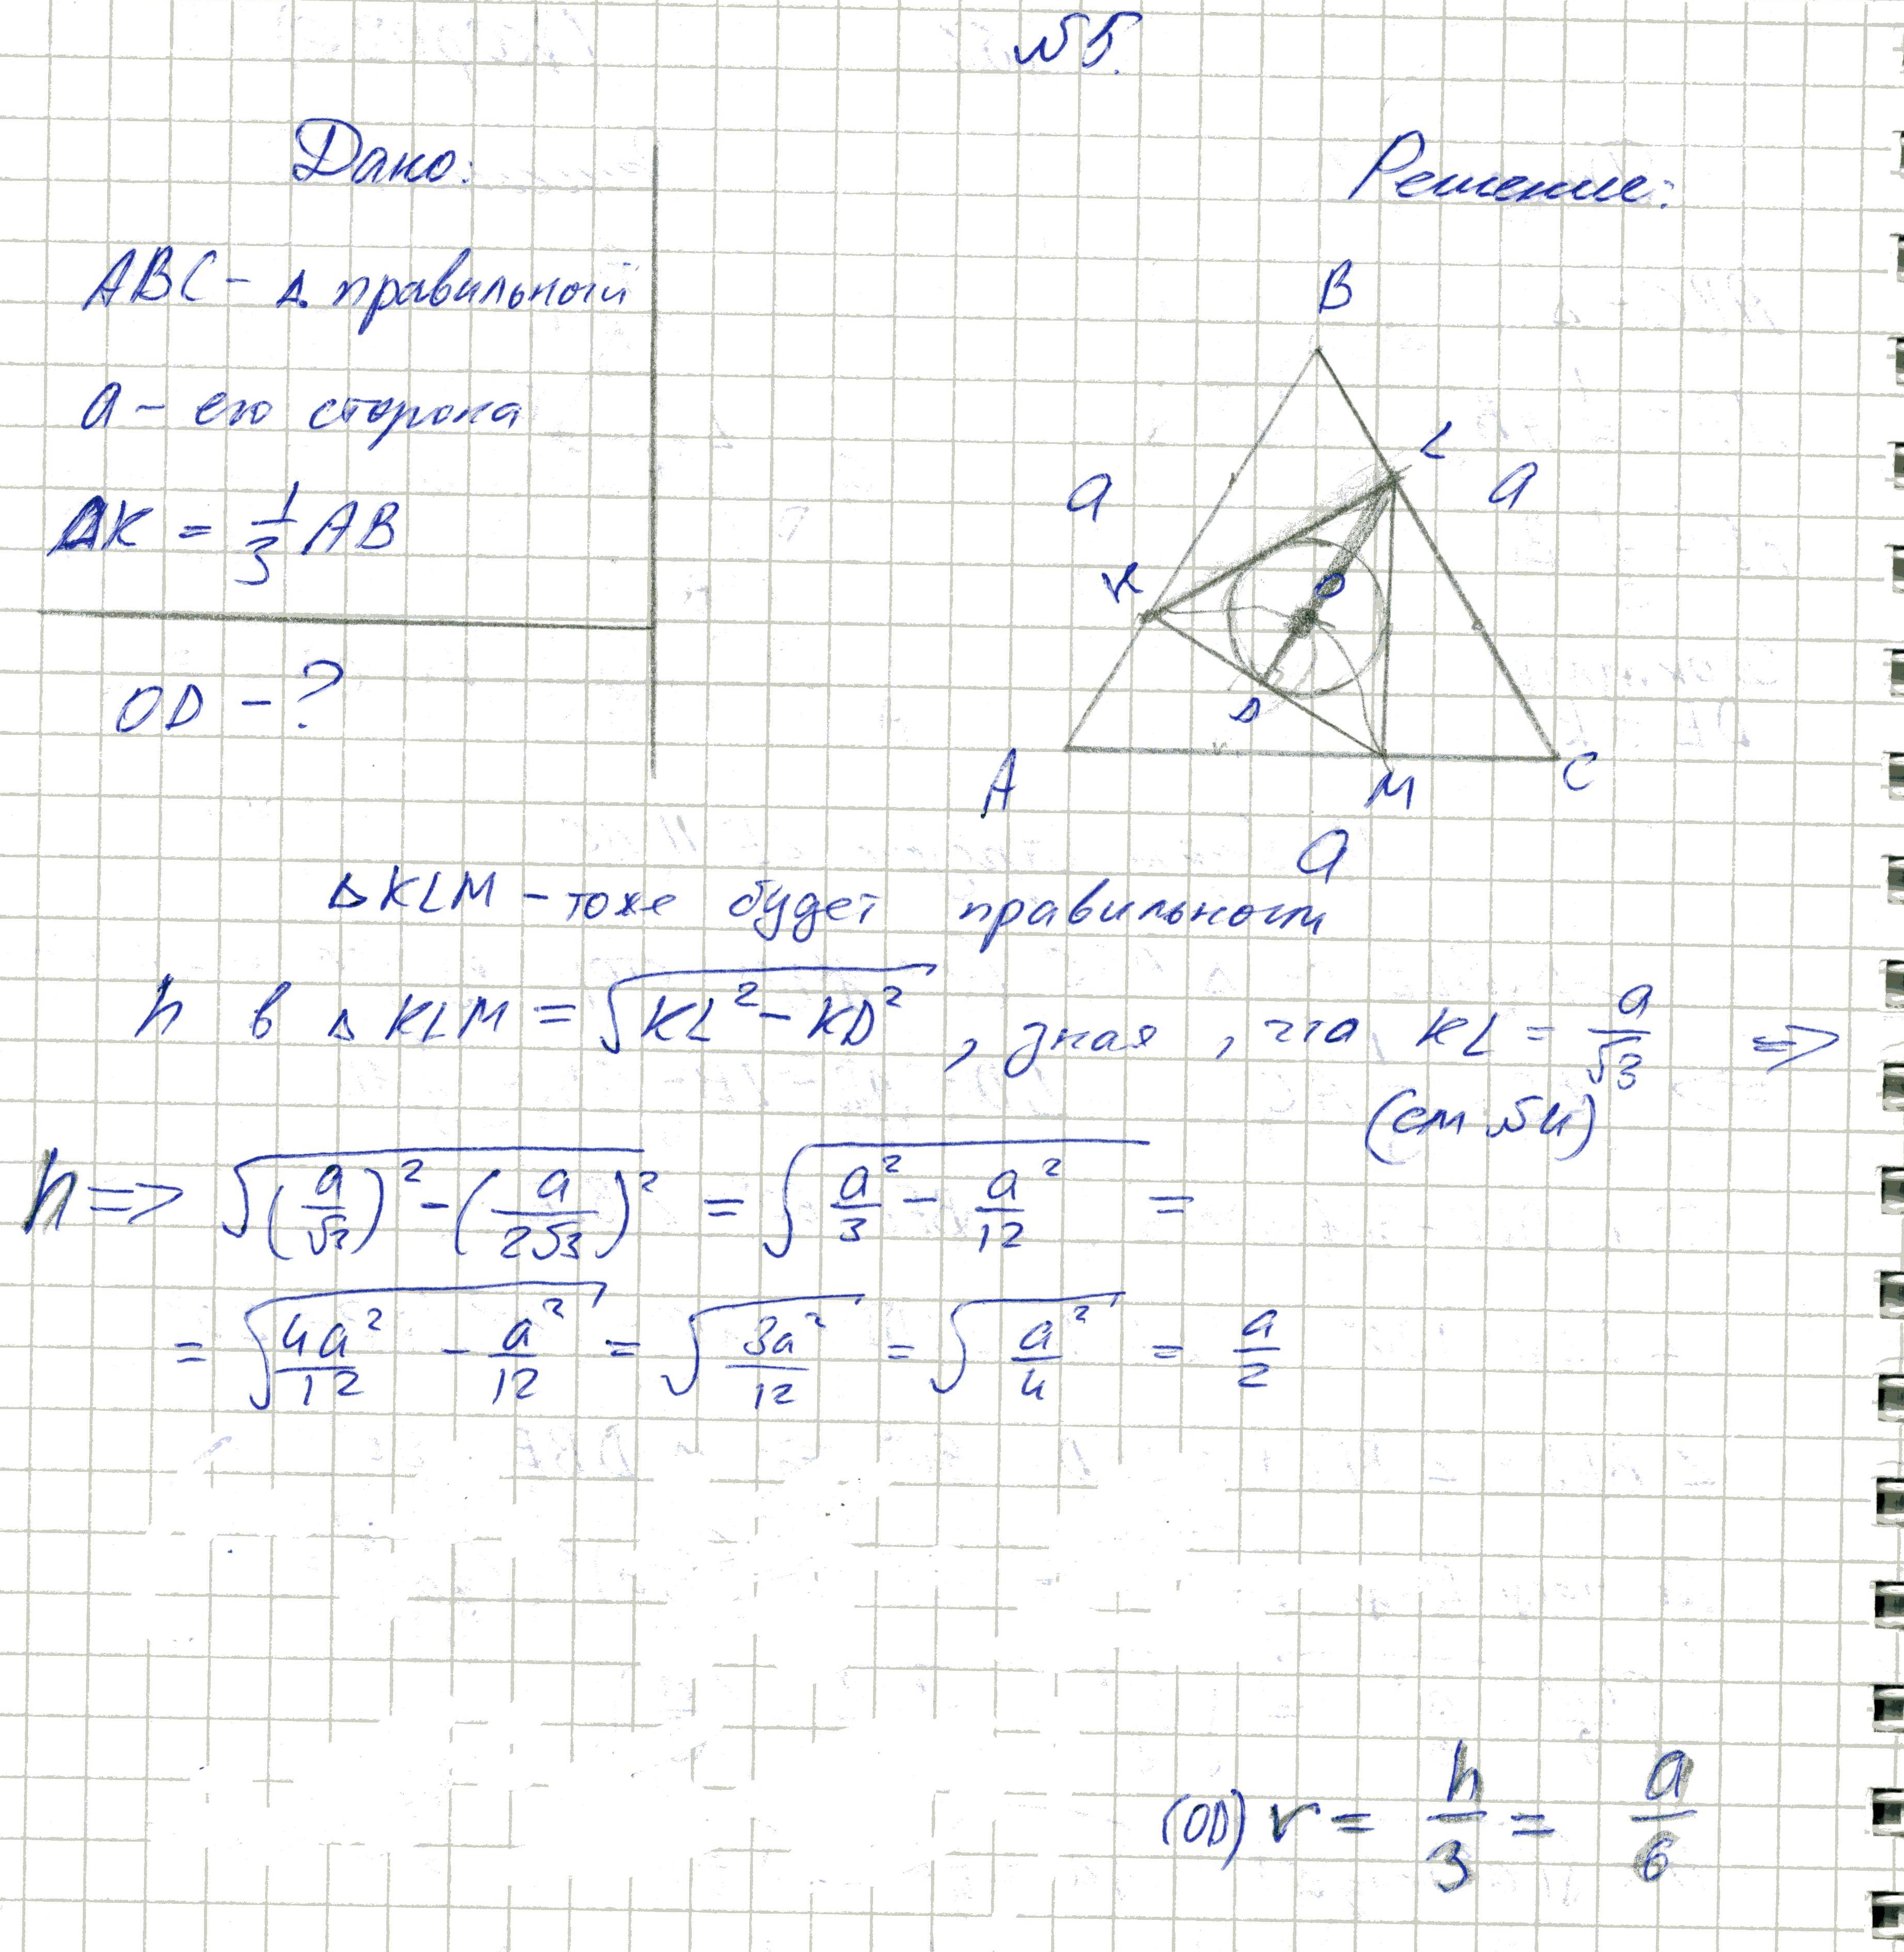 №5.
Дано:
ABC - Δ правильный
a - его сторона
AK = 1/3 AB
OD - ?
Решение:
B
L
a
a
K
O
D
A
M
C
a
ΔKLM - тоже будет правильным
h в ΔKLM = √(KL² - KD²), зная, что KL = a/√3 =>
(см №4)
h => √((a/√3)² - (a/2√3)²) = √(a²/3 - a²/12) =
= √(4a²/12 - a²/12) = √(3a²/12) = √(a²/4) = a/2
(OD) r = h/3 = a/6